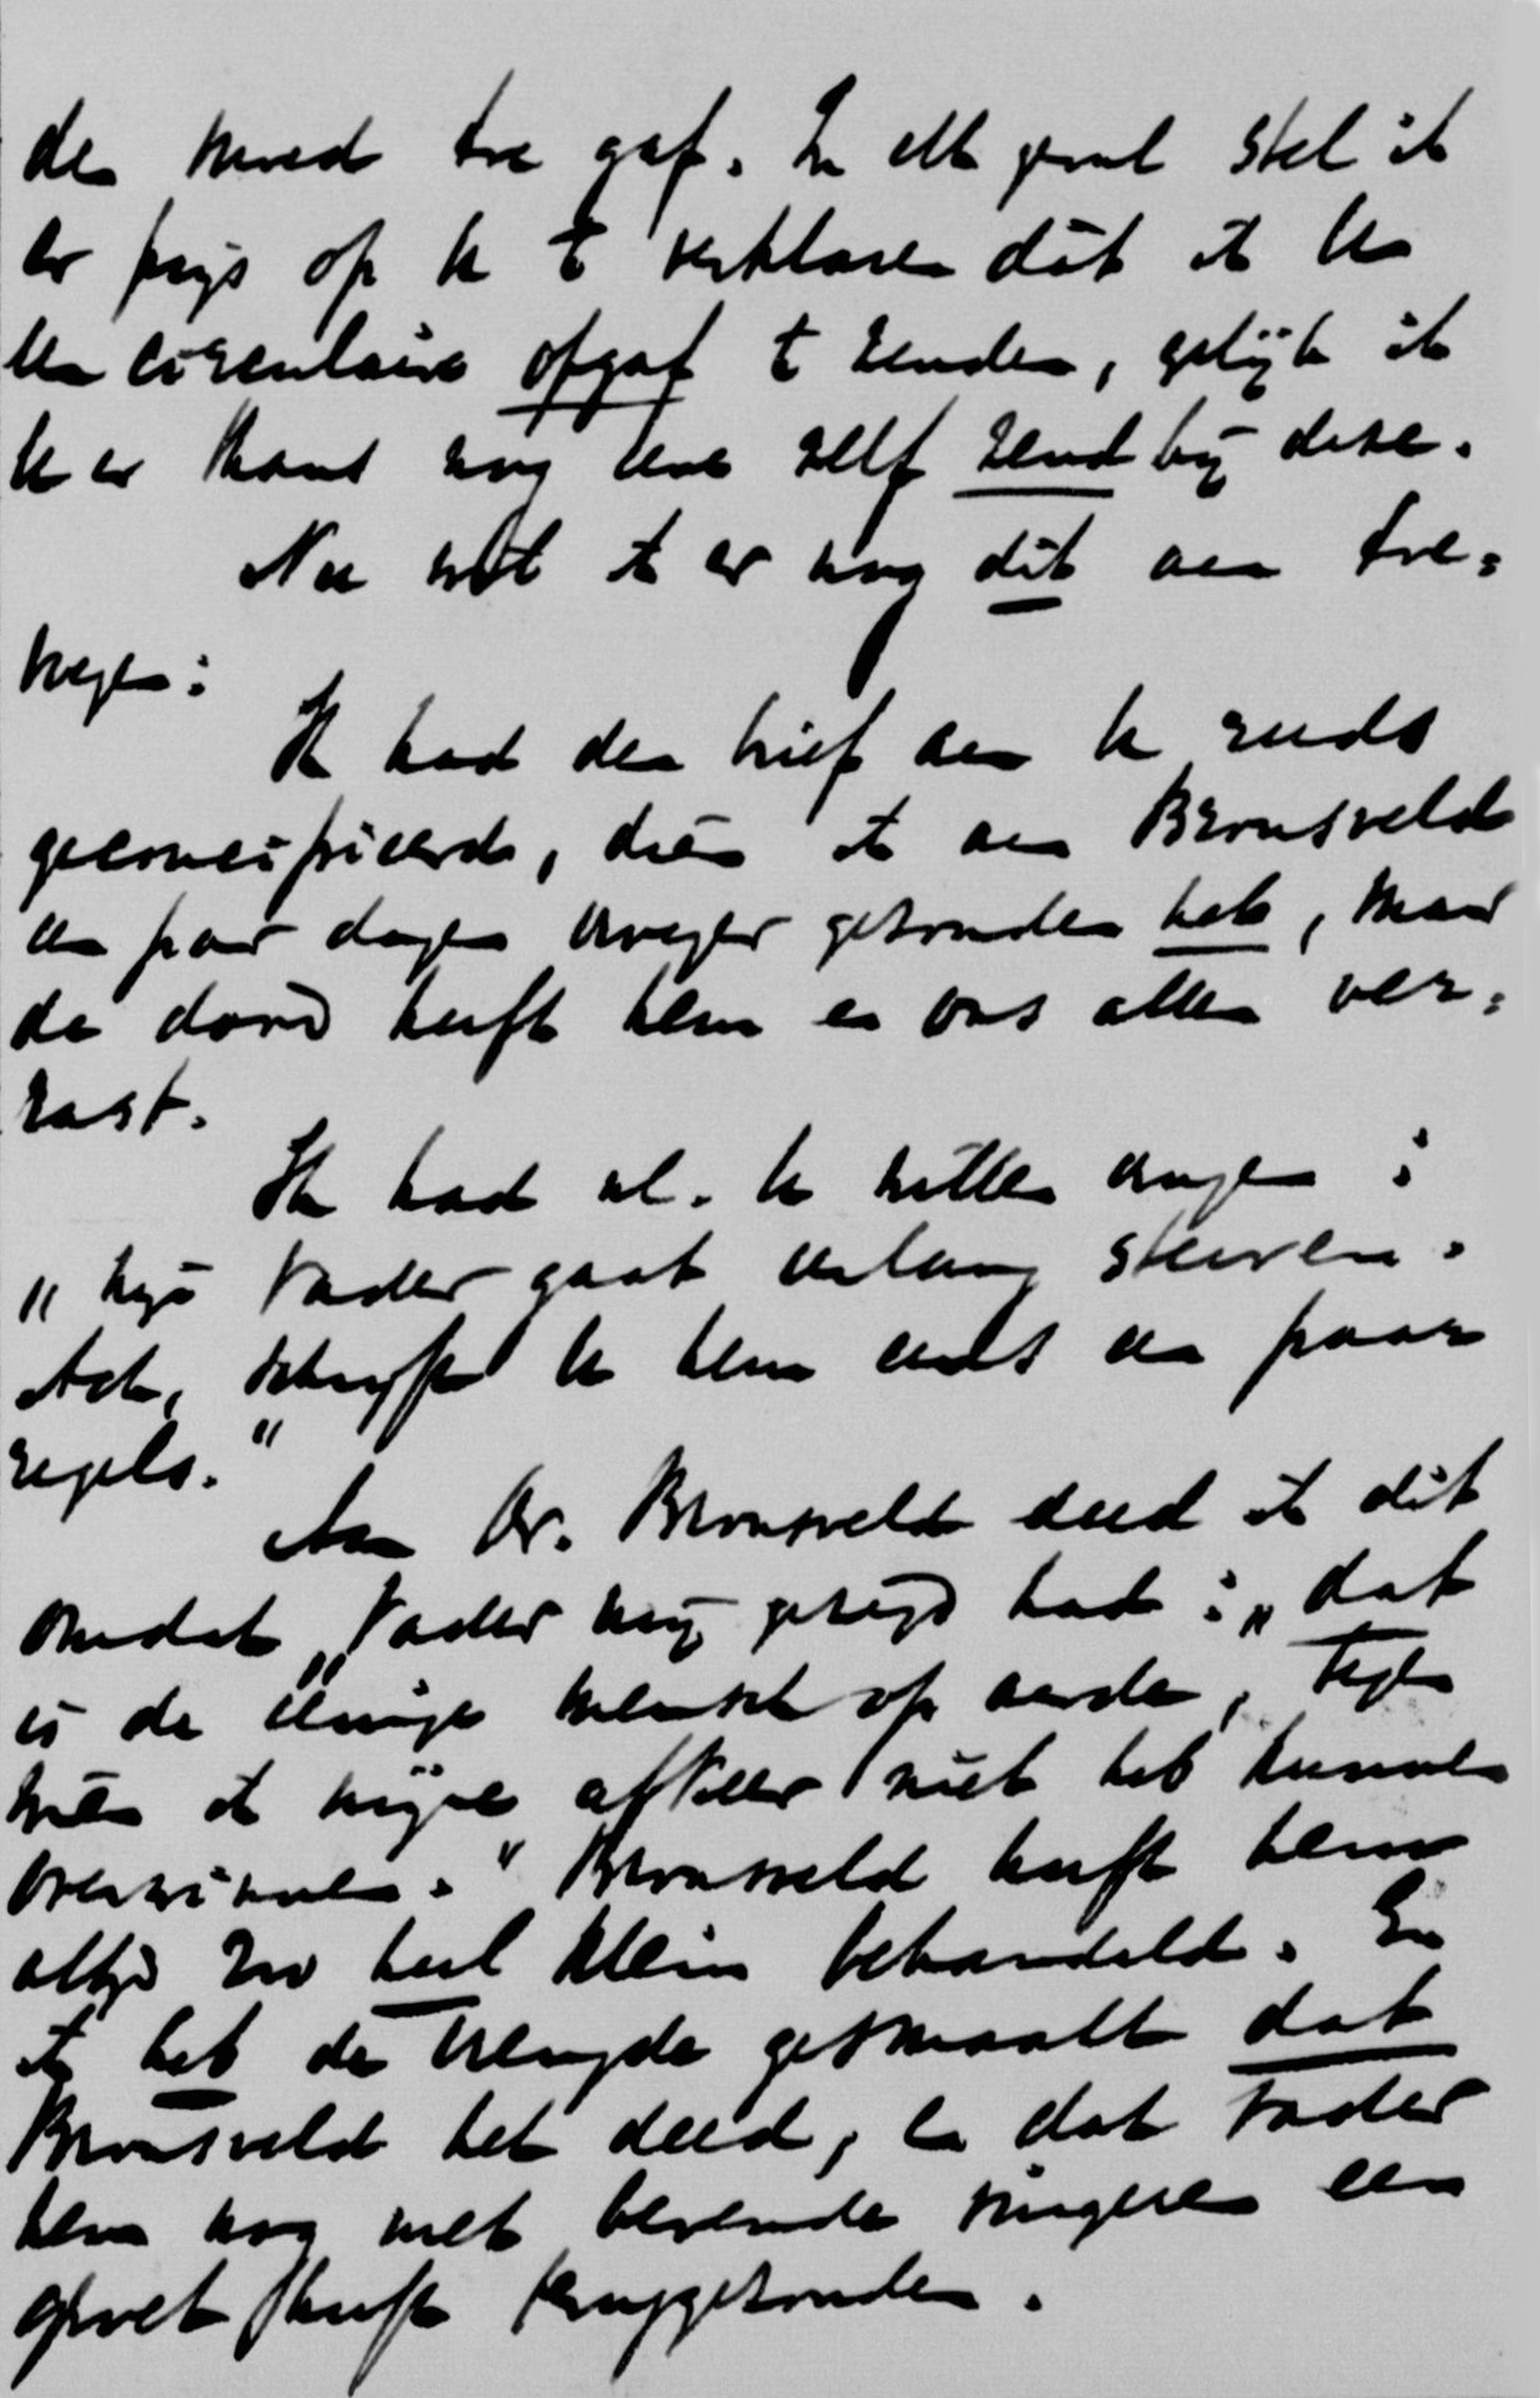 den moed toe gaf. In elk geval stel ik
er prijs op U te verklaren dàt ik U
een circulaire opgaf te zenden, gelijk ik
U er thans nog eene zelf zend bij deze.
Nu wil ik er nog dit aan toe=
voegen:
Ik had den brief aan U reeds
geconcipieerd, dien ik aan Bronsveld
een paar dagen vroeger gezonden heb, maar
de dood heeft hem en ons allen ver=
rast.
Ik had nl. U willen vragen:
„Mijn Vader gaat eerlang sterven.
Ach, schrijft U hem eens een paar
regels."
Aan Dr. Bronsveld deed ik dit
omdat Vader mij gezegd had: „dat
is de eenige mensch op aarde, tegen
wien ik mijne afkeer niet heb kunnen
overwinnen." Bronsveld heeft hem
altijd zoo heel klein behandeld. En
ik heb de vreugde gesmaakt dat
Bronsveld het deed, en dat Vader
hem nog met bevende vingeren een
groet heeft teruggezonden.